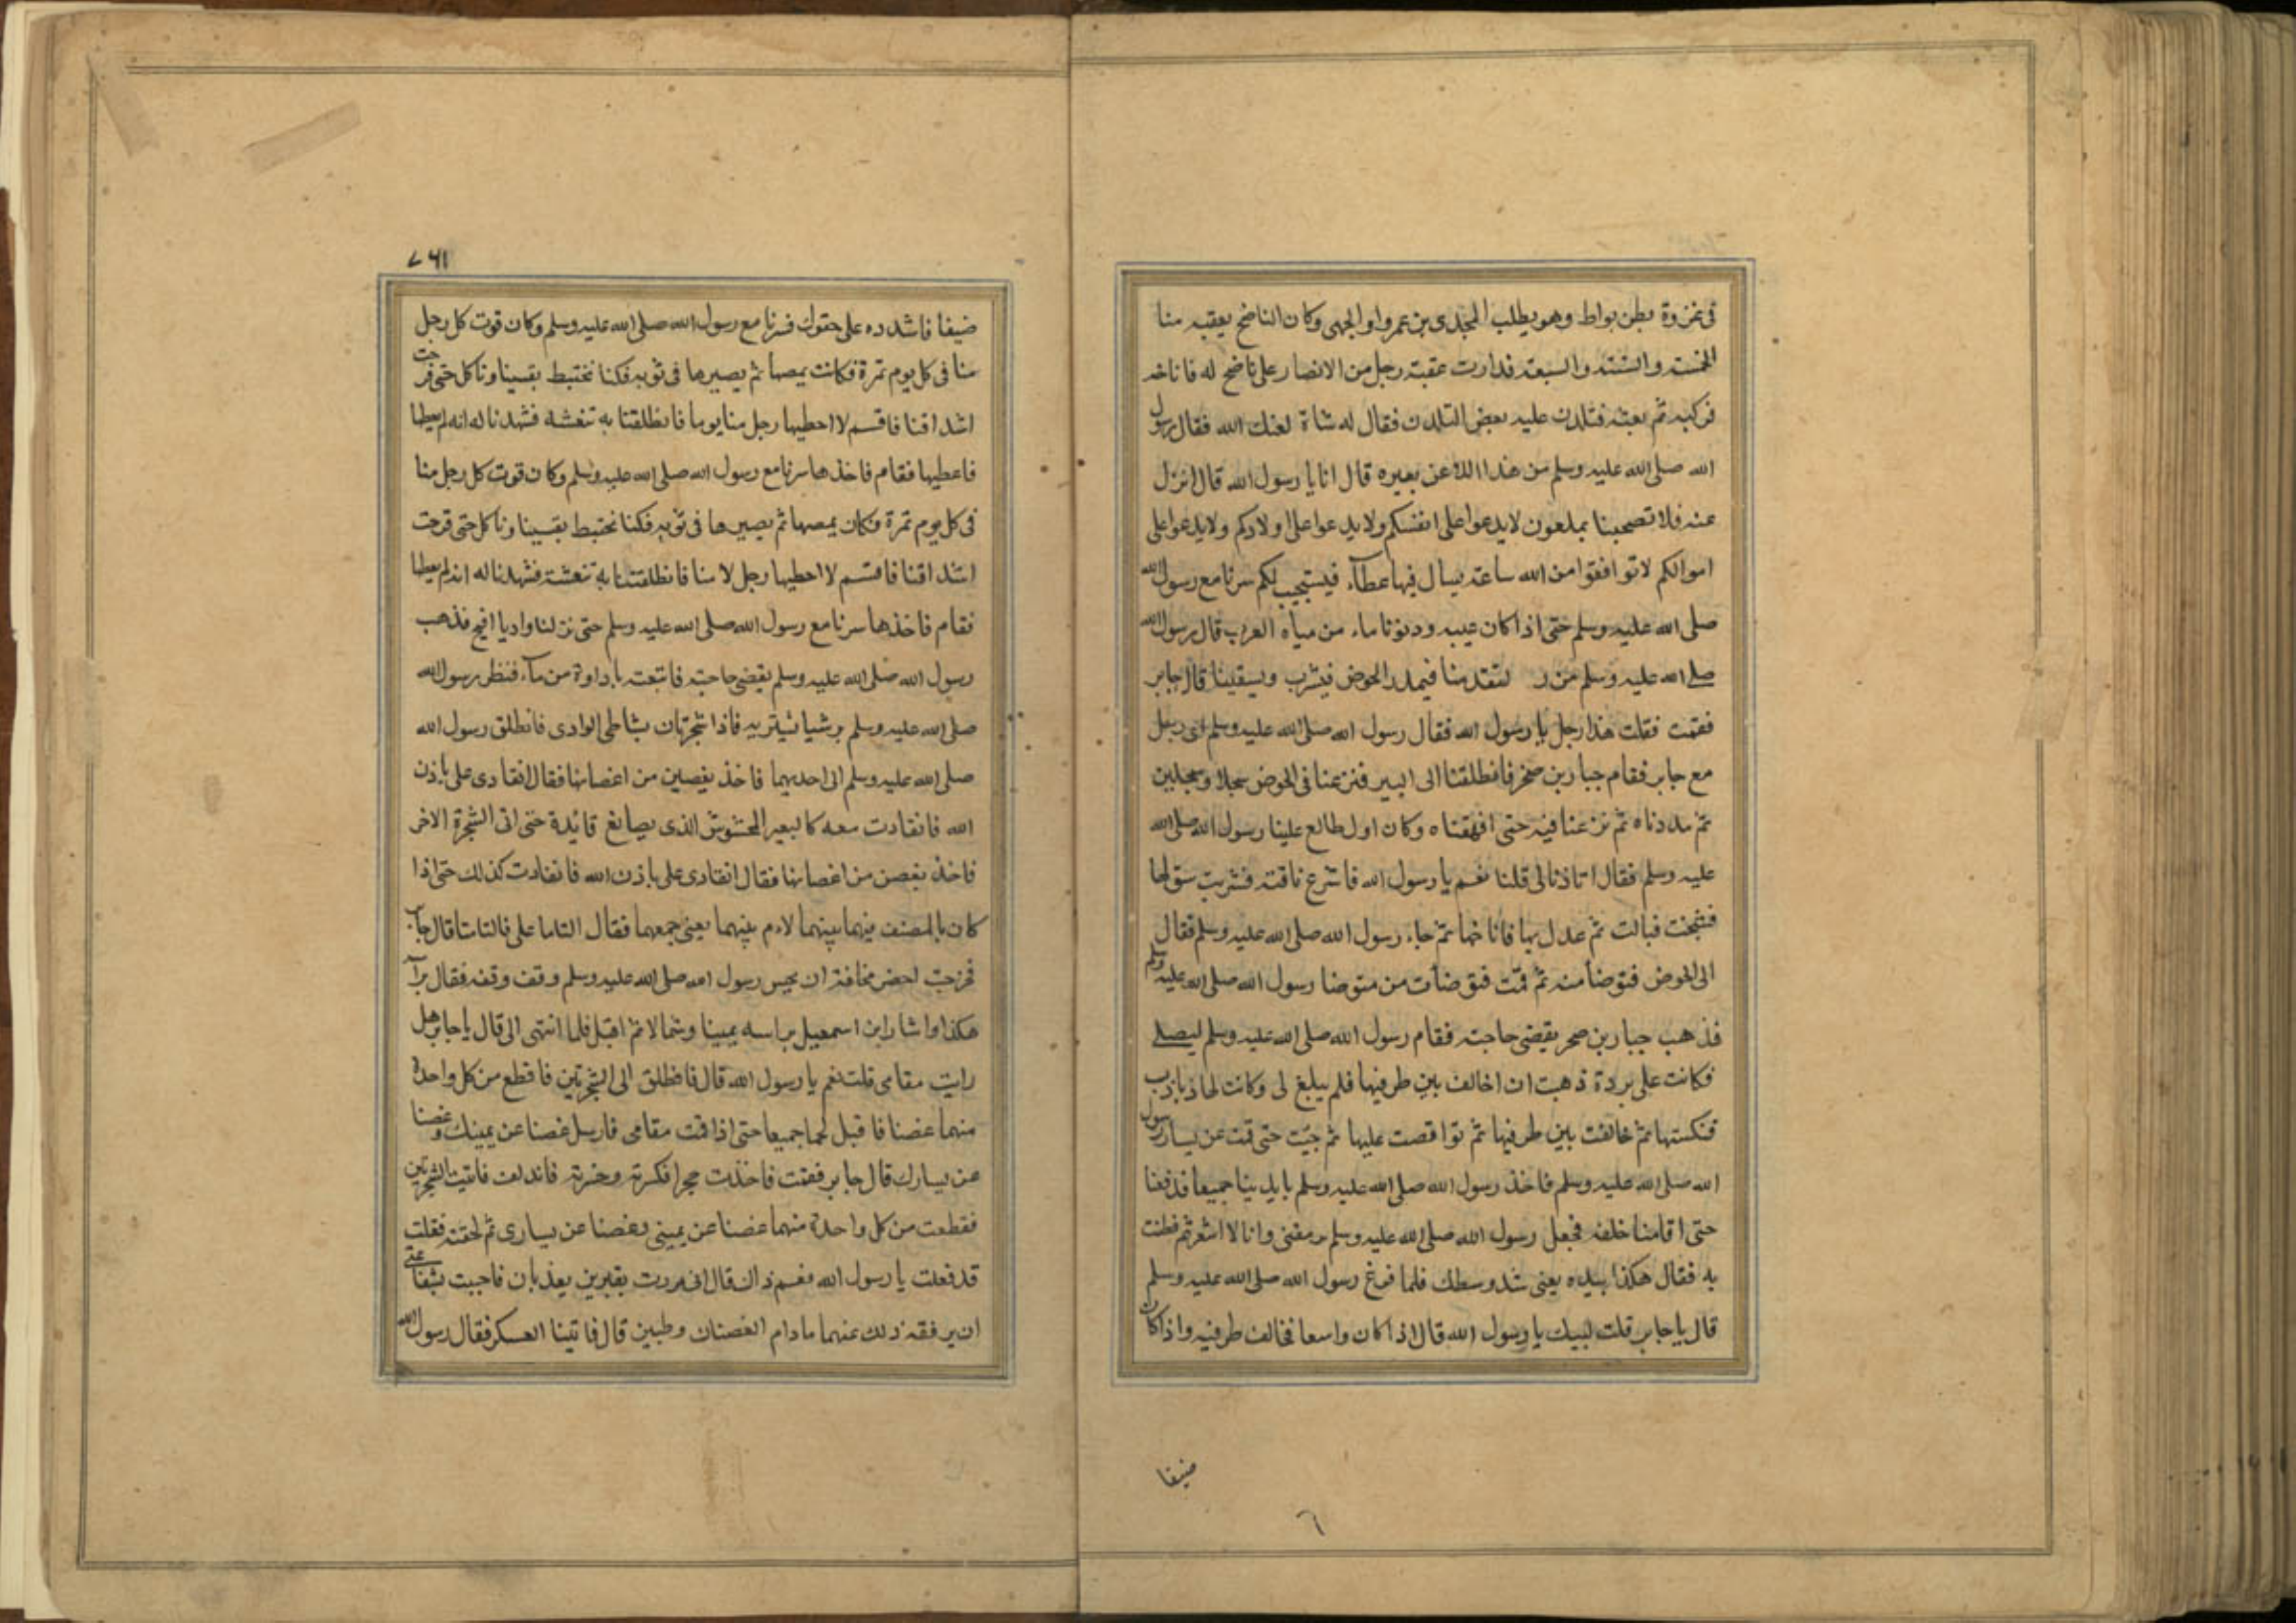 فى غزوة بطن بواط وهو يطلب المجدى بن عمرو او الجهى وكان الناضح يعقبه منا
الخمسة والستة والسبعة فدارت عقبة رجل من الانصار على ناضح له فاناخه
فركبه ثم بعثه فتلدن عليه بعض التلدن فقال له شاة لعنك الله فقال رسول
الله صلى الله عليه وسلم من هذا اللاعن بعيره قال انا يا رسول الله قال انزل
عنه فلا تصحبنا بملعون لا يدعوا على انفسكم ولا يدعوا على اولادكم ولا يدعوا على
اموالكم لا توافقوا من الله ساعة يسال فيها عطآء فيستجيب لكم سرنا مع رسول الله
صلى الله عليه وسلم حتى اذا كان عيبه ودنونا ماء من مياه العرب قال رسول الله
صلى الله عليه وسلم من ر لتقدمنا فيمدر الحوض فيشرب ويسقينا قال جابر
فقمت فقلت هذا رجل يا رسول الله فقال رسول الله صلى الله عليه وسلم اى رجل
مع جابر فقام جبار بن صخر فانطلقنا الى البير فنزعنا فى الحوض سجلا وسجلين
ثم مددناه ثم نزعنا فيه حتى افهقناه وكان اول طالع علينا رسول الله صلى الله
عليه وسلم فقال اتاذنا لى قلنا نعم يا رسول الله فاشرع ناقته فشربت سق لها
فشجت فبالت ثم عدل بها فاناخها ثم جاء رسول الله صلى الله عليه وسلم فقال
الى الحوض فتوضأ منه ثم قمت فتوضأت من متوضا رسول الله صلى الله عليه وسلم
فذهب جبار بن صخر يقضى حاجته فقام رسول الله صلى الله عليه وسلم ليصلى
فكانت على بردة ذهبت ان اخالف بين طرفيها فلم يبلغ لى وكانت لها ذباذب
فنكستها ثم خالفت بين طرفيها ثم تواقصت عليها ثم جئت حتى قمت عن يسار رسول
الله صلى الله عليه وسلم فاخذ رسول الله صلى الله عليه وسلم بايدينا جميعا فدفعنا
حتى اقامنا خلفه فجعل رسول الله صلى الله عليه وسلم يرمقنى وانا لا اشعر ثم فطنت
به فقال هكذا بيده يعنى شد وسطك فلما فرغ رسول الله صلى الله عليه وسلم
قال يا جابر قلت لبيك يا رسول الله قال اذا كان واسعا فخالف طرفيه واذا كان
ضيقا
٦
٧٦١
ضيقا فاشدده على حقوك فسرنا مع رسول الله صلى الله عليه وسلم وكان قوت كل رجل
منا فى كل يوم تمرة فكانت يمصها ثم يصيرها فى ثوبه فكنا نختبط بقسينا وناكل حتى قرحت
اشداقنا فاقسم لا احطيها رجل منا يوما فانطلقنا به تنعشه فشهدنا له انه لم يعطها
فاعطيها فقام فاخذها سرنا مع رسول الله صلى الله عليه وسلم وكان قوت كل رجل منا
فى كل يوم تمرة فكان يمصها ثم يصيرها فى ثوبه فكنا نختبط بقسينا وناكل حتى قرحت
اشداقنا فاقسم لا احطيها رجل لا منا فانطلقنا به تنعشه فشهدنا له انه لم يعطها
فقام فاخذها سرنا مع رسول الله صلى الله عليه وسلم حتى نزلنا واديا افيح فذهب
رسول الله صلى الله عليه وسلم يقضى حاجته فاتبعته باداوة من مآء فنظر رسول الله
صلى الله عليه وسلم ير شيا يستتر به فاذا شجرتان بشاطى الوادى فانطلق رسول الله
صلى الله عليه وسلم الى احديهما فاخذ بغصين من اغصانها فقال انقادى على باذن
الله فانقادت معه كالبعير المخشوش الذى يصانع قائدة حتى اتى الشجرة الاخر
فاخذ بغصن من اغصانها فقال انقادى على باذن الله فانقادت كذلك حتى اذا
كان بالمصنف فيهما بينهما لادم بينهما يعنى جمعهما فقال التاما على فالتامتا قال جابر
فخرجت احضر مخافة ان يحس رسول الله صلى الله عليه وسلم وقف وقفه فقال برا
هكذا واشار ابن اسمعيل براسه يمينا وشمالا ثم اقبل فلما انتهى الى قال يا جابر هل
رايت مقامى قلت نعم يا رسول الله قال فانطلق الى الشجرتين فاقطع من كل واحدة
منهما غصنا فاقبل لهما جميعا حتى اذا قمت مقامى فارسل غصنا عن يمينك وغصنا
عن يسارك قال جابر فقمت فاخذت حجرا فكسرته وحسرته فاندلق فاتيت الشجرتين
فقطعت من كل واحدة منهما غصنا عن يمينى وغصنا عن يسارى ثم لحقته فقلت
قد فعلت يا رسول الله فعم ذاك قال انى مررت بقبرين يعذبان فاحببت بشفاعتى
ان يرفقه ذلك عنهما ما دام الغصنان رطبين قال فاتينا العسكر فقال رسول الله